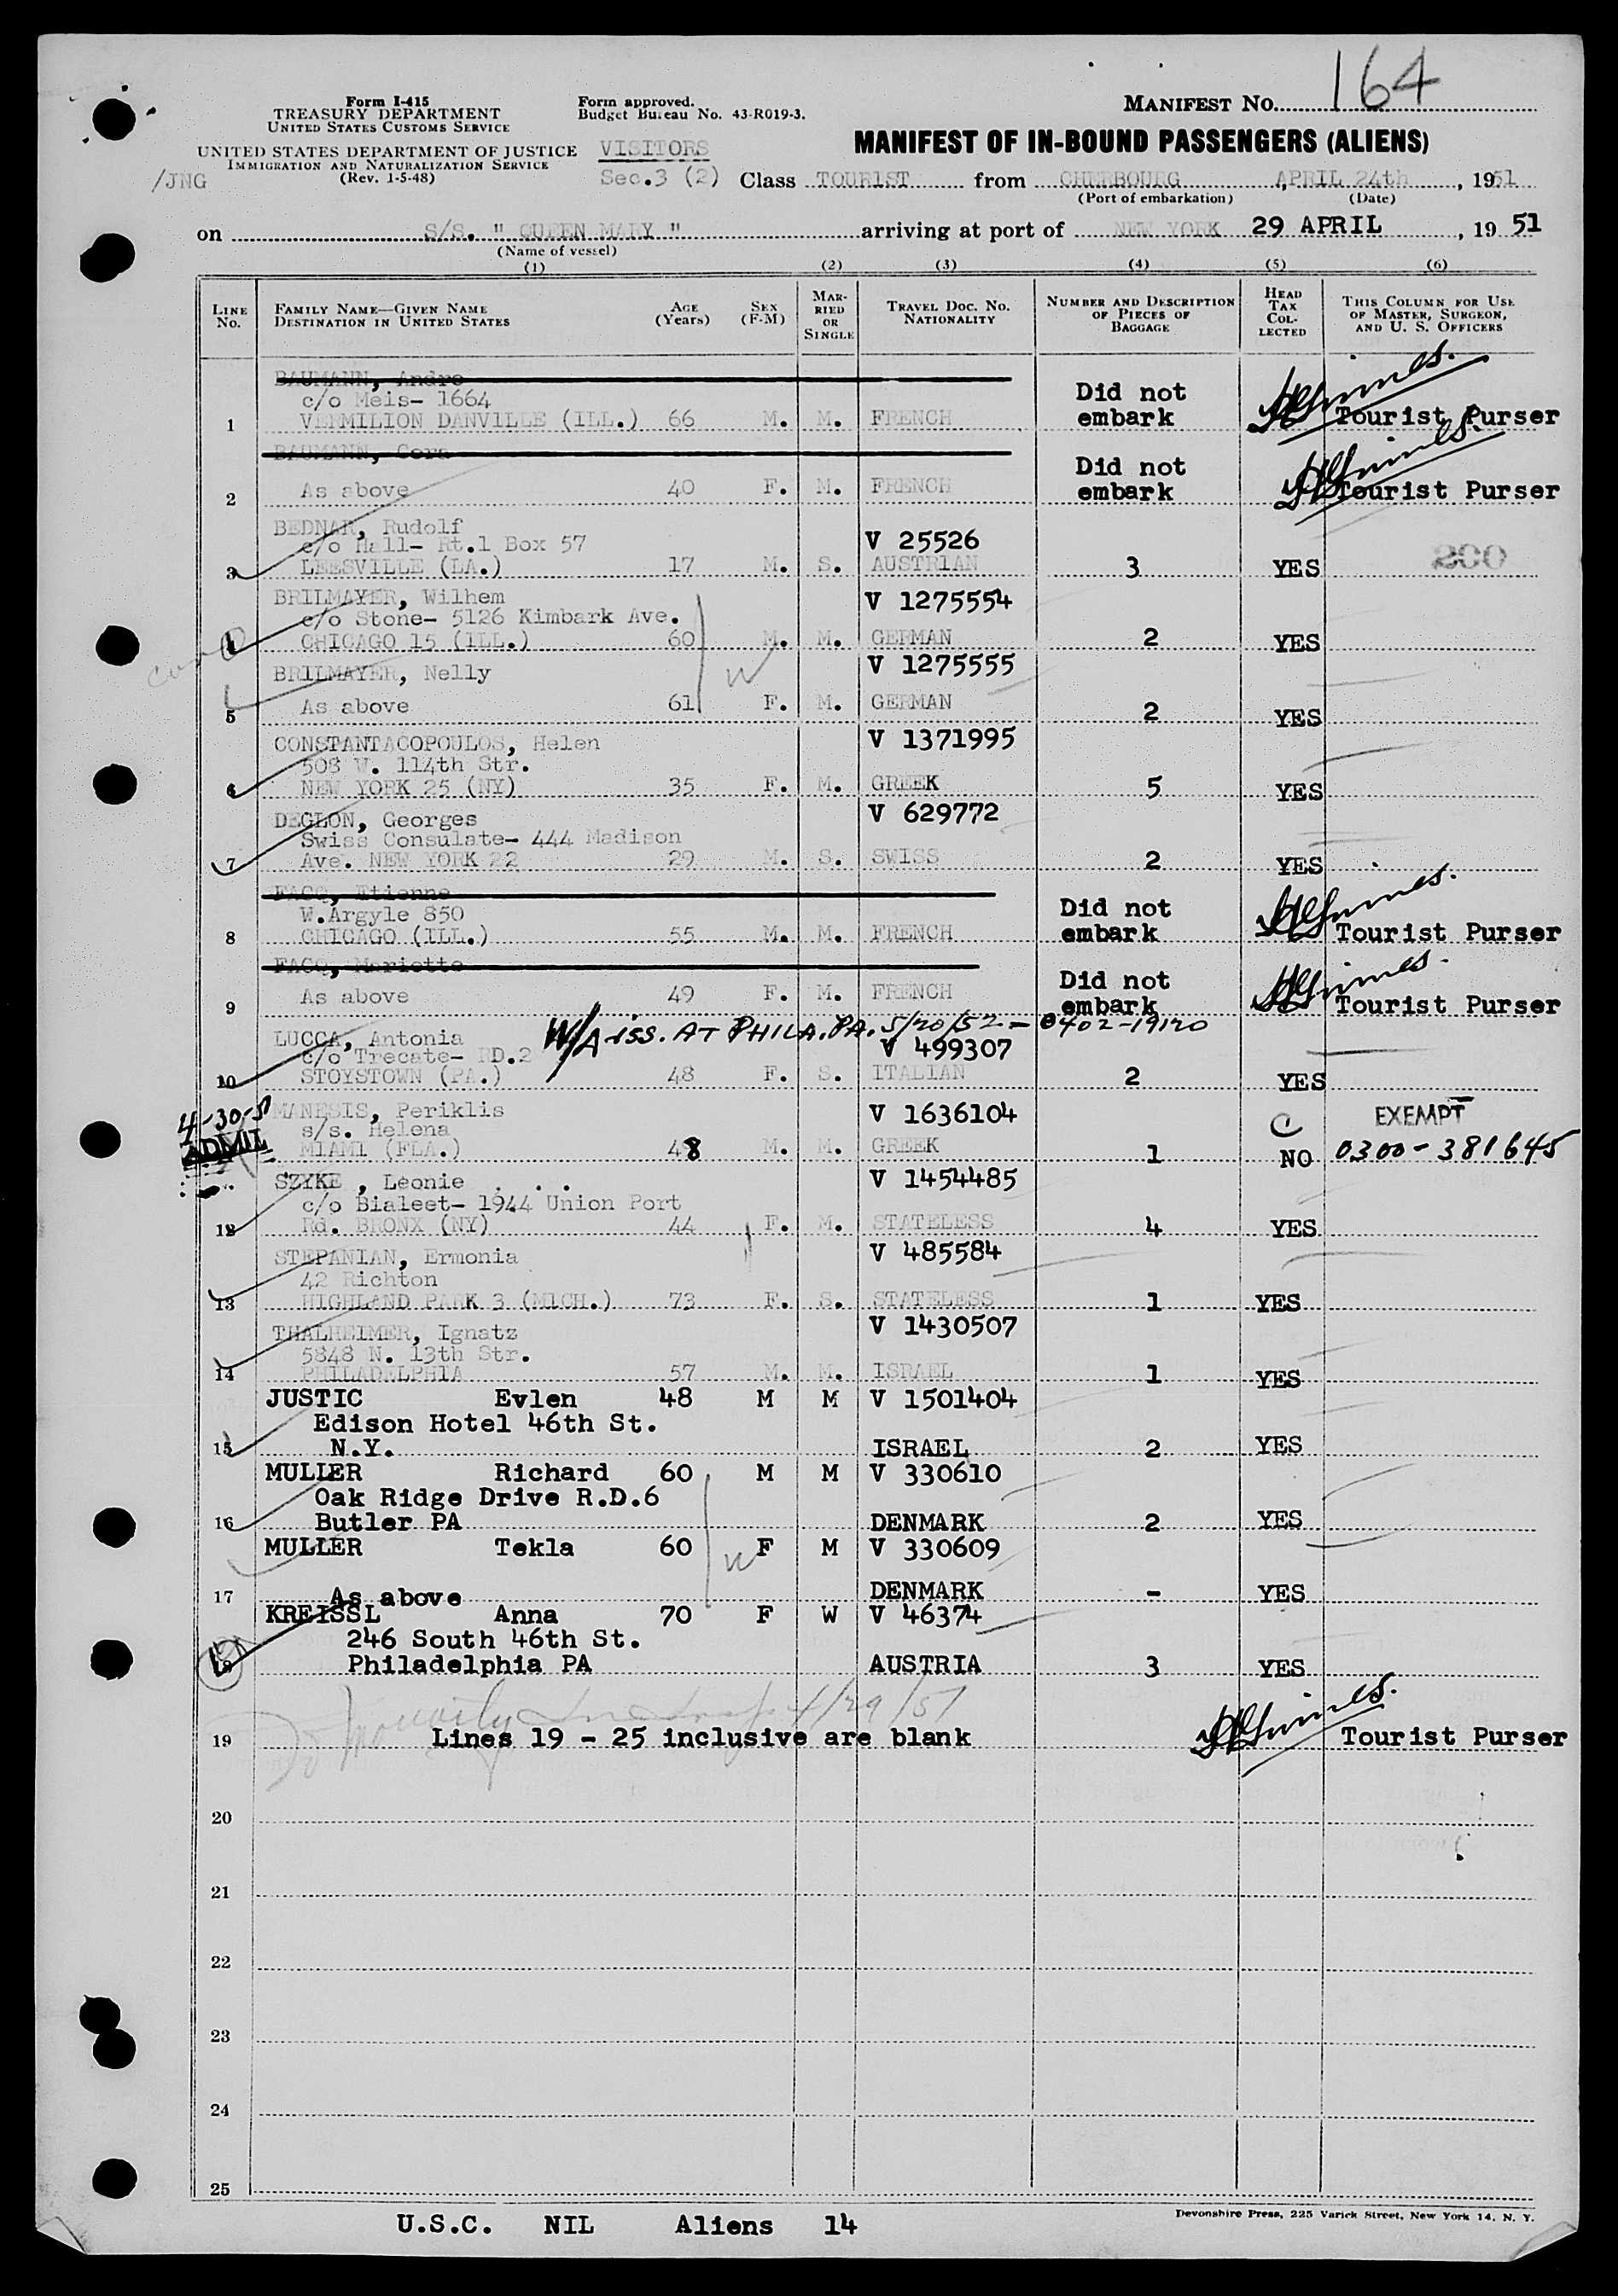 164
Form I-415
TREASURY DEPARTMENT
UNITED STATES CUSTOMS SERVICE
UNITED STATES DEPARTMENT OF JUSTICE
IMMIGRATION AND NATURALIZATION SERVICE
(Rev. 1-5-48)
/JNG
Form approved.
Budget Bureau No. 43-R019-3.
VISITORS
Sec.3 (2)
MANIFEST NO.
MANIFEST OF IN-BOUND PASSENGERS (ALIENS)
Class TOURIST from CHERBOURG, APRIL 24th, 1951
(Port of embarkation) (Date)
on S/S. " QUEEN MARY " arriving at port of NEW YORK 29 APRIL, 19 51
(Name of vessel)
(1) (2) (3) (4) (5) (6)
LINE NO. FAMILY NAME—GIVEN NAME DESTINATION IN UNITED STATES AGE (Years) SEX (F-M) MARRIED OR SINGLE TRAVEL DOC. NO. NATIONALITY NUMBER AND DESCRIPTION OF PIECES OF BAGGAGE HEAD TAX COLLECTED THIS COLUMN FOR USE OF MASTER, SURGEON, AND U. S. OFFICERS
BAUMANN, Andre
c/o Meis- 1664 Did not
1 VERMILION DANVILLE (ILL.) 66 M. M. FRENCH embark Tourist Purser
BAUMANN, Cora Did not
2 As above 40 F. M. FRENCH embark Tourist Purser
BEDNAR, Rudolf
c/o Hall- Rt.1 Box 57 V 25526
3 LEESVILLE (LA.) 17 M. S. AUSTRIAN 3 YES 200
BRILMAYER, Wilhem V 1275554
c/o Stone- 5126 Kimbark Ave.
4 CHICAGO 15 (ILL.) 60 M. M. GERMAN 2 YES
BRILMAYER, Nelly V 1275555
W
5 As above 61 F. M. GERMAN 2 YES
CONSTANTACOPOULOS, Helen V 1371995
508 W. 114th Str.
6 NEW YORK 25 (NY) 35 F. M. GREEK 5 YES
DEGLON, Georges V 629772
Swiss Consulate- 444 Madison
7 Ave. NEW YORK 22 29 M. S. SWISS 2 YES
FACQ, Etienne
W.Argyle 850 Did not
8 CHICAGO (ILL.) 55 M. M. FRENCH embark Tourist Purser
FACQ, Mariette Did not
9 As above 49 F. M. FRENCH embark Tourist Purser
W/A iss. AT PHILA. PA. 5/20/52 - 0402-19120
LUCCA, Antonia
c/o Trecate- RD.2 V 499307
10 STOYSTOWN (PA.) 48 F. S. ITALIAN 2 YES
4-30-51
ADMIL
MANESIS, Periklis V 1636104 EXEMPT
s/s. Helena
MIAMI (FLA.) 48 M. M. GREEK 1 NO 0300-381645
SZYKE , Leonie V 1454485
c/o Bialeet- 1944 Union Port
12 Rd. BRONX (NY) 44 F. M. STATELESS 4 YES
STEPANIAN, Ermonia V 485584
42 Richton
13 HIGHLAND PARK 3 (MICH.) 73 F. S. STATELESS 1 YES
THALHEIMER, Ignatz V 1430507
5848 N. 13th Str.
14 PHILADELPHIA 57 M. M. ISRAEL 1 YES
JUSTIC Evlen 48 M M V 1501404
Edison Hotel 46th St.
15 N.Y. ISRAEL 2 YES
MULLER Richard 60 M M V 330610
Oak Ridge Drive R.D.6
16 Butler PA DENMARK 2 YES
MULLER Tekla 60 W F M V 330609
17 As above DENMARK - YES
KREISSL Anna 70 F W V 46374
246 South 46th St.
18 Philadelphia PA AUSTRIA 3 YES
4/29/51
19 Lines 19 - 25 inclusive are blank Tourist Purser
20
21
22
23
24
25
U.S.C. NIL Aliens 14
Devonshire Press, 225 Varick Street, New York 14, N. Y.